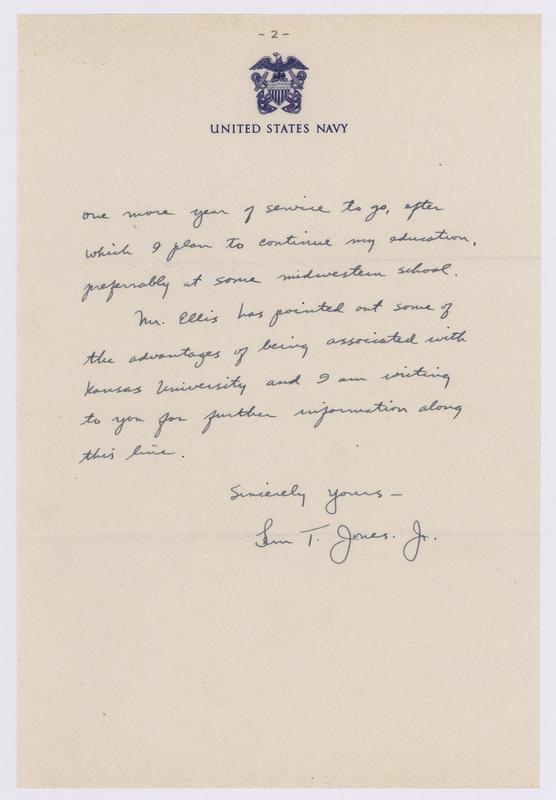 - 2 -
UNITED STATES NAVY
one more year of service to go, after
which I plan to continue my education,
preferrably at some midwestern school.
Mr. Ellis has pointed out some of
the advantages of being associated with
Kansas University and I am writing
to you for further information along
this line.
Sincerely yours —
T. Jones. Jr.